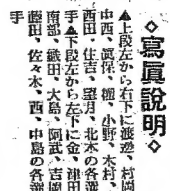 ◇寫眞説明◇
▲上段左から右下に渡邊、村岡
中西、眞保、楊、小野、木村、
西田、住吉、望月、北本の各選
手▲下段左から左下に金、津田
南部、織田、大島、阿武、吉岡
藤田、佐々木、西、中島の各選
手